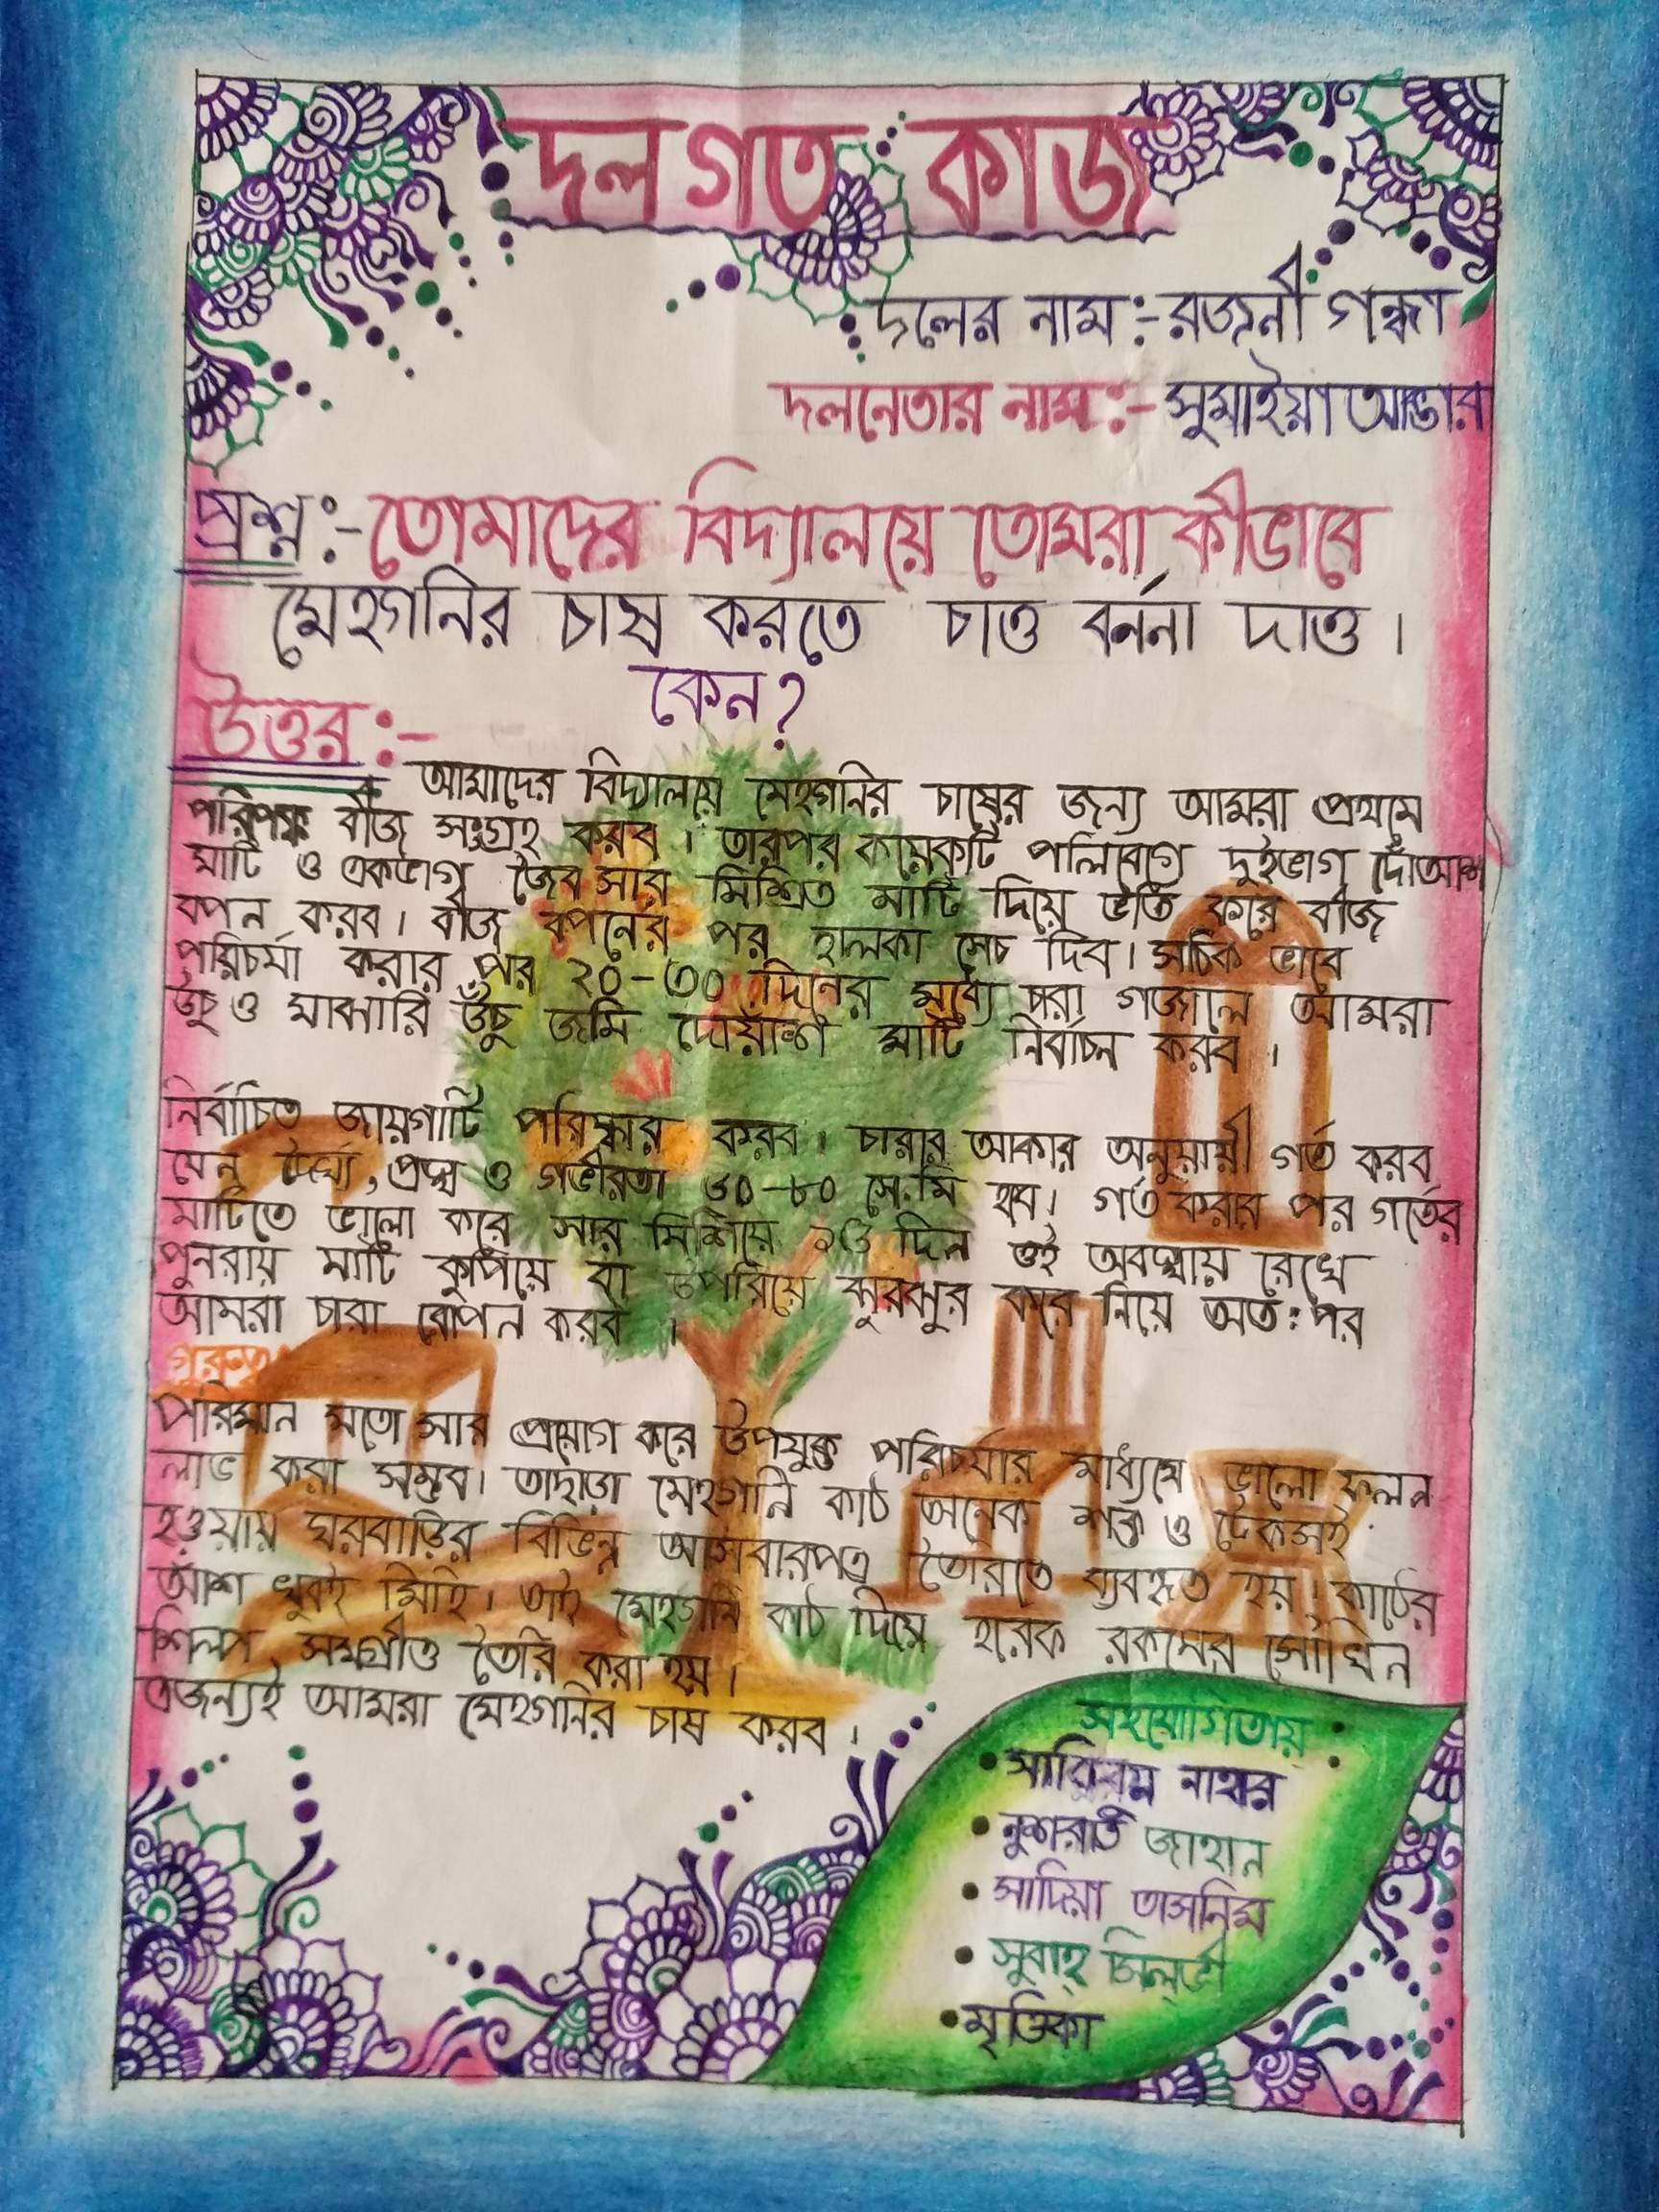 দলগত কাজ
দলের নাম:- রজনী গন্ধা
দলনেতার নাম:- সুমাইয়া আক্তার
প্রশ্ন:- তোমাদের বিদ্যালয়ে তোমরা কীভাবে
মেহগনির চাষ করতে চাও বর্ননা দাও।
কেন?
উত্তর:-
আমাদের বিদ্যালয়ে মেহগনির চাষের জন্য আমরা প্রথমে
পরিপক্ক বীজ সংগ্রহ করব। তারপর কয়েকটি পলিব্যাগে দুইভাগ দোঁআশ
মাটি ও একভাগ জৈব সার মিশ্রিত মাটি দিয়ে ভর্তি করে বীজ
বপন করব। বীজ বপনের পর হালকা সেচ দিব। সঠিক ভাবে
পরিচর্যা করার পর ২০-৩০ দিনের মধ্যে চারা গজালে আমরা
উঁচু ও মাঝারি উঁচু জমি দোয়াঁশ মাটি নির্বাচন করব।
নির্বাচিত জায়গাটি পরিষ্কার করব। চারার আকার অনুযায়ী গর্ত করব
যেন দৈর্ঘ্য, প্রস্থ ও গভীরতা ৬০-৮০ সে.মি হব। গর্ত করার পর গর্তের
মাটিতে ভালো করে সার মিশিয়ে দিন ওই অবস্থায় রেখে
পুনরায় মাটি কুপিয়ে বা উপরিয়ে ঝুরঝুর করে নিয়ে অত:পর
আমরা চারা রোপন করব।
গুরুত্ব
পরিমান মতো সার প্রয়োগ করে উপযুক্ত পরিচর্যার মাধ্যমে ভালো ফলন
লাভ করা সম্ভব। তাছাড়া মেহগনি কাঠ অনেক শক্ত ও টেকসই
হওয়ায় ঘরবাড়ির বিভিন্ন আসবারপত্র তৈরিতে ব্যবহৃত হয়। কাঠের
আঁশ খুবই মিহি। তাই মেহগনি কাঠ দিয়ে হরেক রকমের সৌখিন
শিল্প সমগ্রীও তৈরি করা হয়।
এজন্যই আমরা মেহগনির চাষ করব।
সহযোগিতায়
• নাহার
• নুশরাত জাহান
• সাদিয়া তাসনিম
• সুবাহ্ সিল্ভী
• মৃত্তিকা